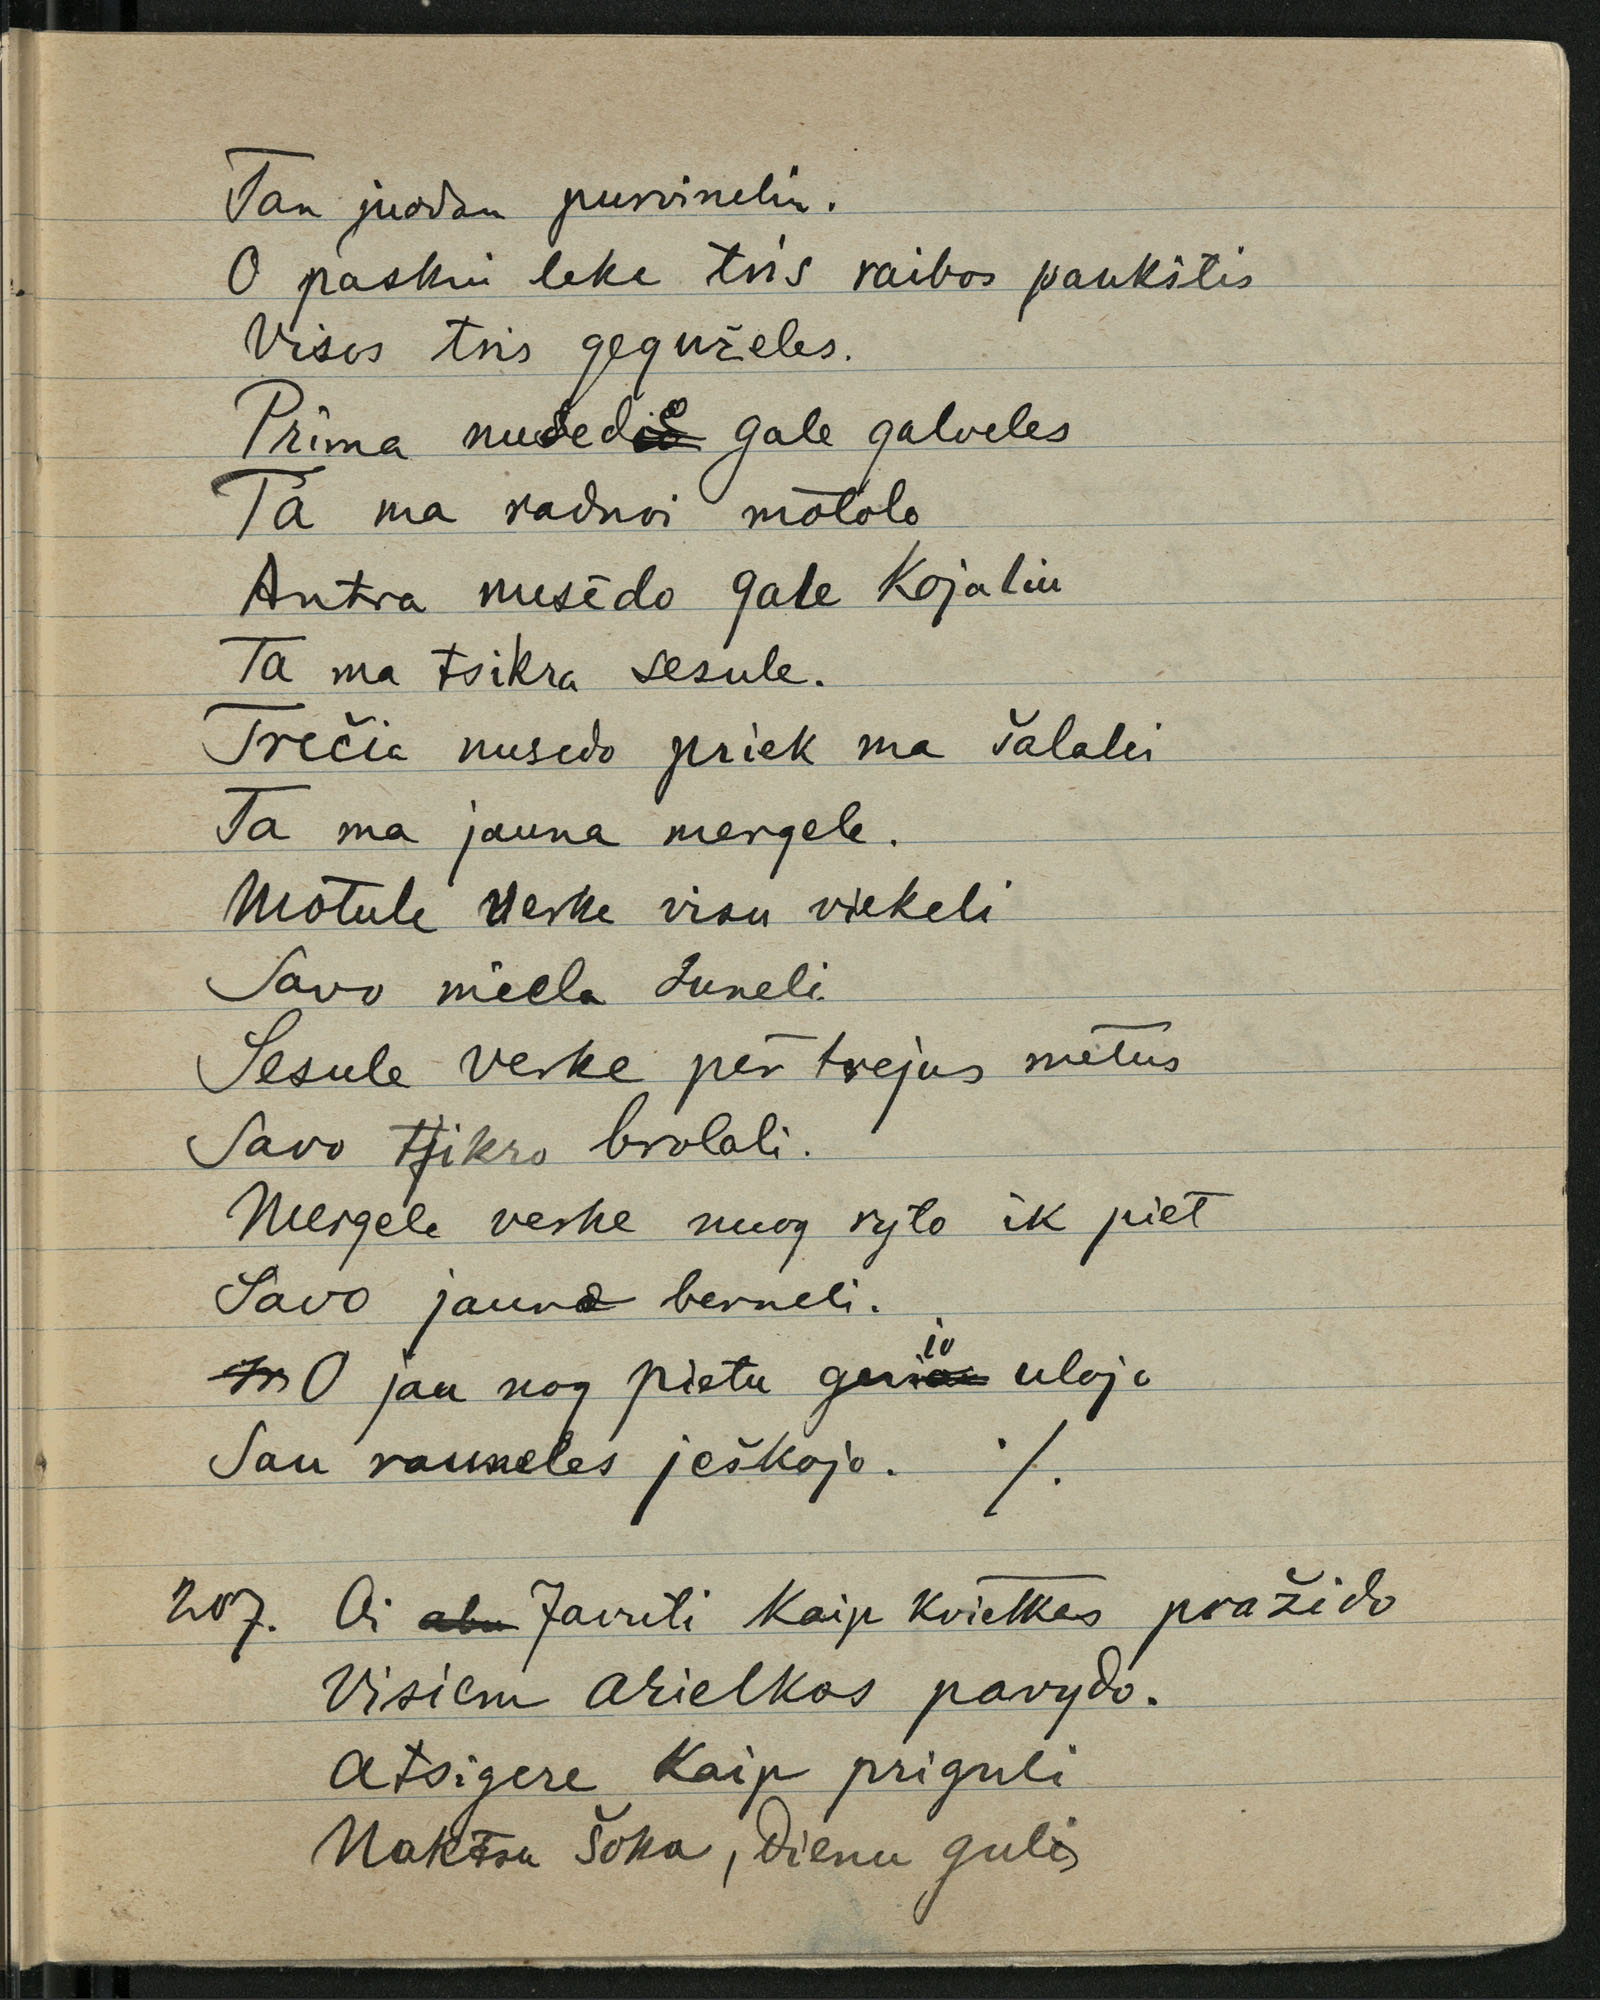 Tan juodan purvinelin.
O paskui leke tris raibos paukštis
Visos tris geguželes.
Prima nusedo gale galveles
Ta ma radnoi mōtolo
Antra nusēdo gale Kojaliu
Ta ma tsikra sesule.
Trečia nusedo priek ma šalalei
Ta ma jauna mergele.
Mōtule verke visu viekeli
Savo miela suneli
Sesule verke pēr trejus mētus
Savo tsikro brolali.
Mergele verke nuog ryto ik piet
Savo jauna berneli.
O jau nog pietu gerio ulojo
Sau rauneles ješkojo. ·/.
207. Oi Javuti Kaip kvietkas pražido
Visiem arielkos pavydo.
Atsigere Kaip priguli
Naktsu šoka, Dienu gulis